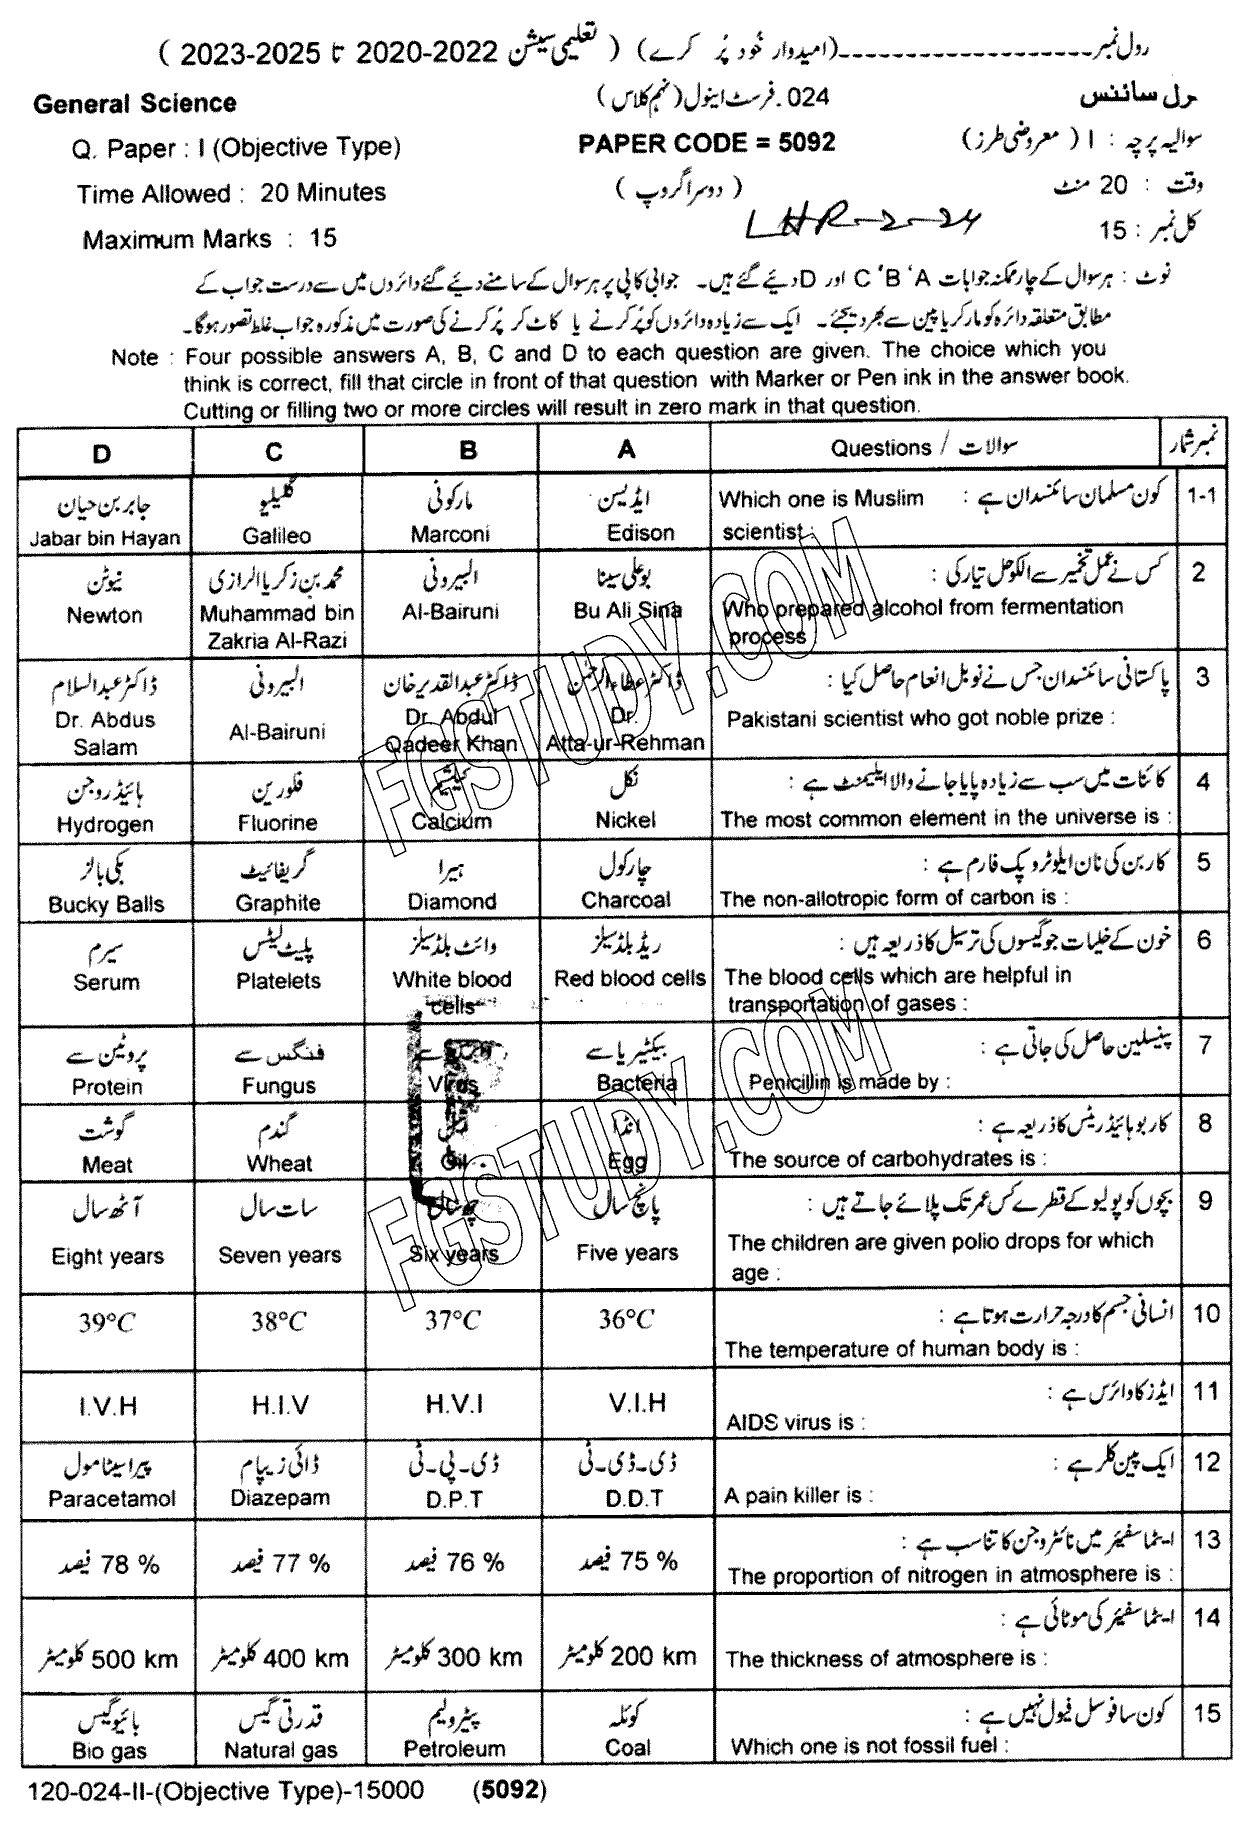 رول نمبر--------------------(امیدوار خود پُر کرے) ( تعلیمی سیشن 2022-2020 تا 2025-2023 )
General Science
024۔ فرسٹ اینول (نہم کلاس)
رل سائنس
Q. Paper : I (Objective Type)
PAPER CODE = 5092
سوالیہ پرچہ : I ( معروضی طرز )
Time Allowed : 20 Minutes
( دوسرا گروپ )
وقت : 20 منٹ
Maximum Marks : 15
LHR-2-24
کل نمبر : 15
نوٹ : ہر سوال کے چار ممکنہ جوابات A ،B ،C اور D دیئے گئے ہیں۔ جوابی کاپی پر ہر سوال کے سامنے دیئے گئے دائروں میں سے درست جواب کے
مطابق متعلقہ دائرہ کو مارکر یا پین سے بھر دیجئے۔ ایک سے زیادہ دائروں کو پُر کرنے یا کاٹ کر پُر کرنے کی صورت میں مذکورہ جواب غلط تصور ہوگا۔
Note : Four possible answers A, B, C and D to each question are given. The choice which you
think is correct, fill that circle in front of that question with Marker or Pen ink in the answer book.
Cutting or filling two or more circles will result in zero mark in that question.
D C B A Questions / سوالات نمبر شمار
جابر بن حیان گلیلیو مارکونی ایڈیسن Which one is Muslim کون مسلمان سائنسدان ہے : 1-1
Jabar bin Hayan Galileo Marconi Edison scientist :
نیوٹن محمد بن زکریا الرازی البیرونی بوعلی سینا کس نے عمل تخمیر سے الکوحل تیار کی : 2
Newton Muhammad bin Al-Bairuni Bu Ali Sina Who prepared alcohol from fermentation
Zakria Al-Razi process
ڈاکٹر عبدالسلام البیرونی ڈاکٹر عبدالقدیر خان ڈاکٹر عطاءالرحمٰن پاکستانی سائنسدان جس نے نوبل انعام حاصل کیا : 3
Dr. Abdus Al-Bairuni Dr. Abdul Dr. Pakistani scientist who got noble prize :
Salam Qadeer Khan Atta-ur-Rehman
ہائیڈروجن فلورین کیلشیم نکل کائنات میں سب سے زیادہ پایا جانے والا ایلیمنٹ ہے : 4
Hydrogen Fluorine Calcium Nickel The most common element in the universe is :
بکی بالز گریفائیٹ ہیرا چارکول کاربن کی نان ایلوٹروپک فارم ہے : 5
Bucky Balls Graphite Diamond Charcoal The non-allotropic form of carbon is :
سیرم پلیٹ لیٹس وائٹ بلڈ سیلز ریڈ بلڈ سیلز خون کے خلیات جو گیسوں کی ترسیل کا ذریعہ ہیں : 6
Serum Platelets White blood Red blood cells The blood cells which are helpful in
cells transportation of gases :
پروٹین سے فنگس سے بیکٹیریا سے پینسلین حاصل کی جاتی ہے : 7
Protein Fungus Virus Bacteria Penicillin is made by :
گوشت گندم انڈا کاربوہائیڈریٹس کا ذریعہ ہے : 8
Meat Wheat Oil Egg The source of carbohydrates is :
آٹھ سال سات سال چھ سال پانچ سال بچوں کو پولیو کے قطرے کس عمر تک پلائے جاتے ہیں : 9
Eight years Seven years Six years Five years The children are given polio drops for which
age :
39°C 38°C 37°C 36°C انسانی جسم کا درجہ حرارت ہوتا ہے : 10
The temperature of human body is :
I.V.H H.I.V H.V.I V.I.H ایڈز کا وائرس ہے : 11
AIDS virus is :
پیراسیٹامول ڈائی زیپام ڈی۔پی۔ٹی ڈی۔ڈی۔ٹی ایک پین کلر ہے : 12
Paracetamol Diazepam D.P.T D.D.T A pain killer is :
78 % فیصد 77 % فیصد 76 % فیصد 75 % فیصد ایٹماسفیئر میں نائٹروجن کا تناسب ہے : 13
The proportion of nitrogen in atmosphere is :
ایٹماسفیئر کی موٹائی ہے : 14
500 km کلومیٹر 400 km کلومیٹر 300 km کلومیٹر 200 km کلومیٹر The thickness of atmosphere is :
بائیو گیس قدرتی گیس پیٹرولیم کوئلہ کون سا فوسل فیول نہیں ہے : 15
Bio gas Natural gas Petroleum Coal Which one is not fossil fuel :
120-024-II-(Objective Type)-15000 (5092)
FGSTUDY.COM
FGSTUDY.COM